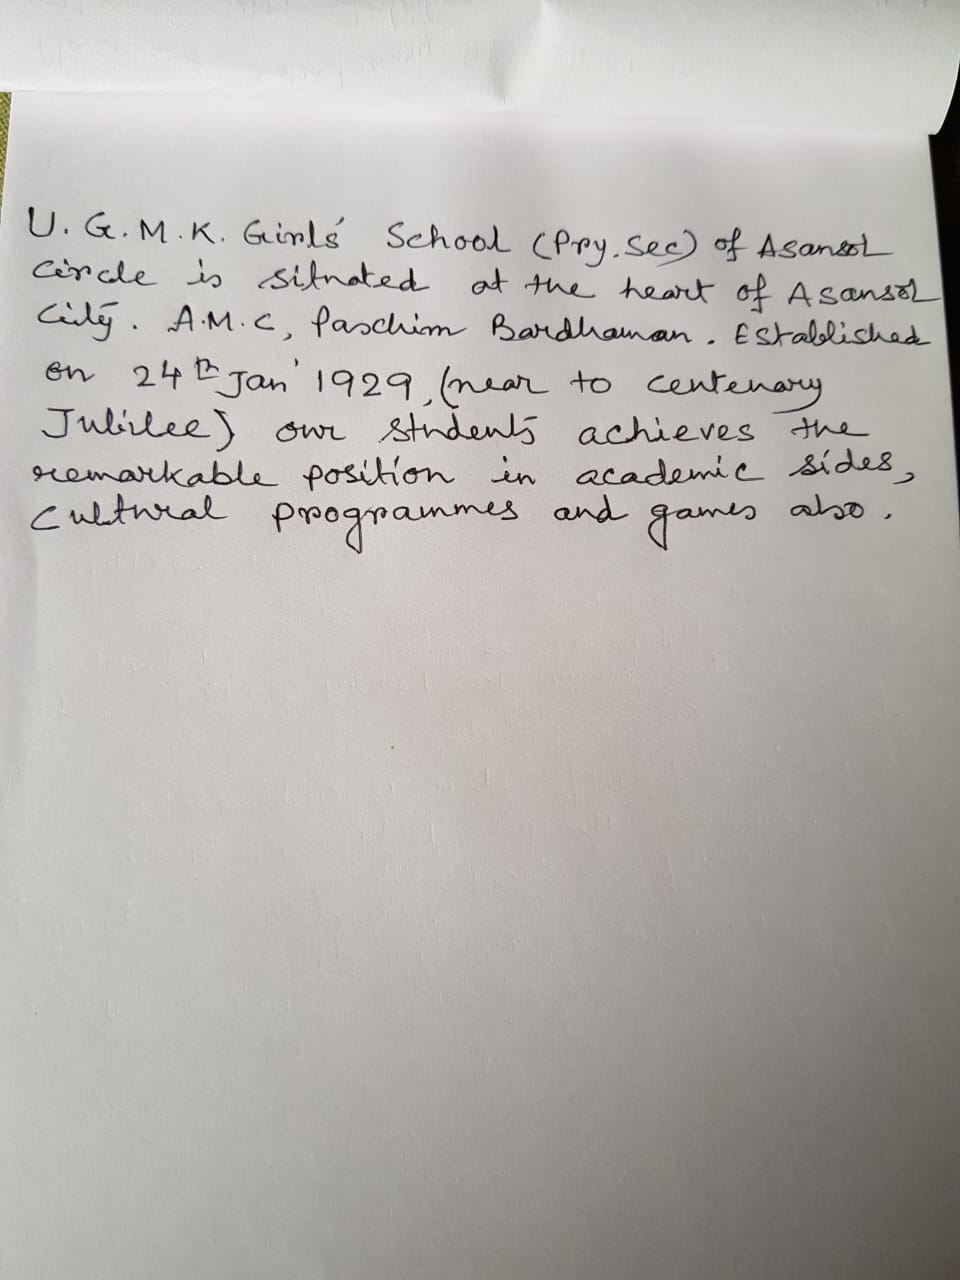 U. G. M. K. Girls' School (Pry. Sec) of Asansol
Circle is situated at the heart of Asansol
City. A.M.C, Paschim Bardhaman. Established
on 24th Jan' 1929, (near to centenary
Jubilee) our students achieves the
remarkable position in academic sides,
cultural programmes and games also.